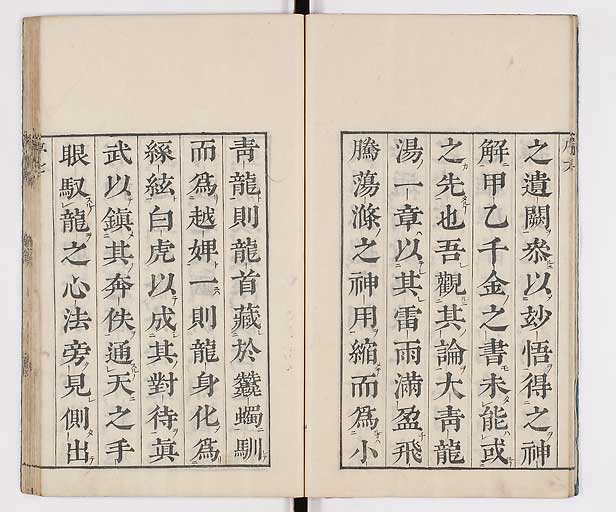 之遺闕叅以玅悟得之神
解甲乙千金之書未能或
之先也吾觀其論大靑龍
湯一章以其雷雨滿盈飛
騰蕩滌之神用縮而爲小
靑龍則龍首藏於蠿蠋馴
而爲越婢一則龍身化爲
絃白虎以成其對待眞
武以鎭其奔佚通天之手
眼馭龍之心法旁見側出